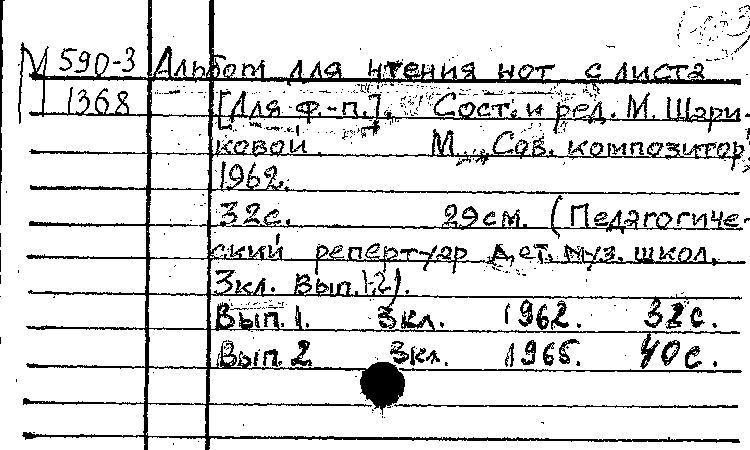 М 590-3 Альбом для чтения нот с листа
1368 [Для ф.-п.]. Сост. и ред. М. Шари-
ковой. М., „Сов. композитор",
1962.
32с. 29см. (Педагогиче-
ский репертуар дет. муз. школ.
3кл. Вып.1-2).
Вып. 1. 3кл. 1962. 32с.
Вып. 2 3кл. 1965. 40с.